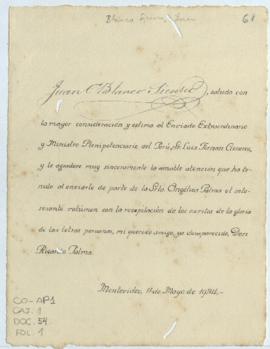 Blanco Sienra, Juan
61
Juan C. Blanco Sienra, saluda con
la mayor consideración y estima al Enviado Extraordinario
y Ministro Plenipotenciario del Perú Sr. Luis Fernan Cisneros,
y le agradece muy sinceramente la amable atención que ha te-
nido al enviarle de parte de la Srta. Angélica Palma el inte-
resante volúmen con la recopilación de los escritos de la gloria
de las letras peruanas, mi querido amigo, ya desaparecido, Don
Ricardo Palma.
Montevideo, 11 de Mayo de 1934.-
CO-AP1
CAJ. 1
DOC. 54
FOL. 1